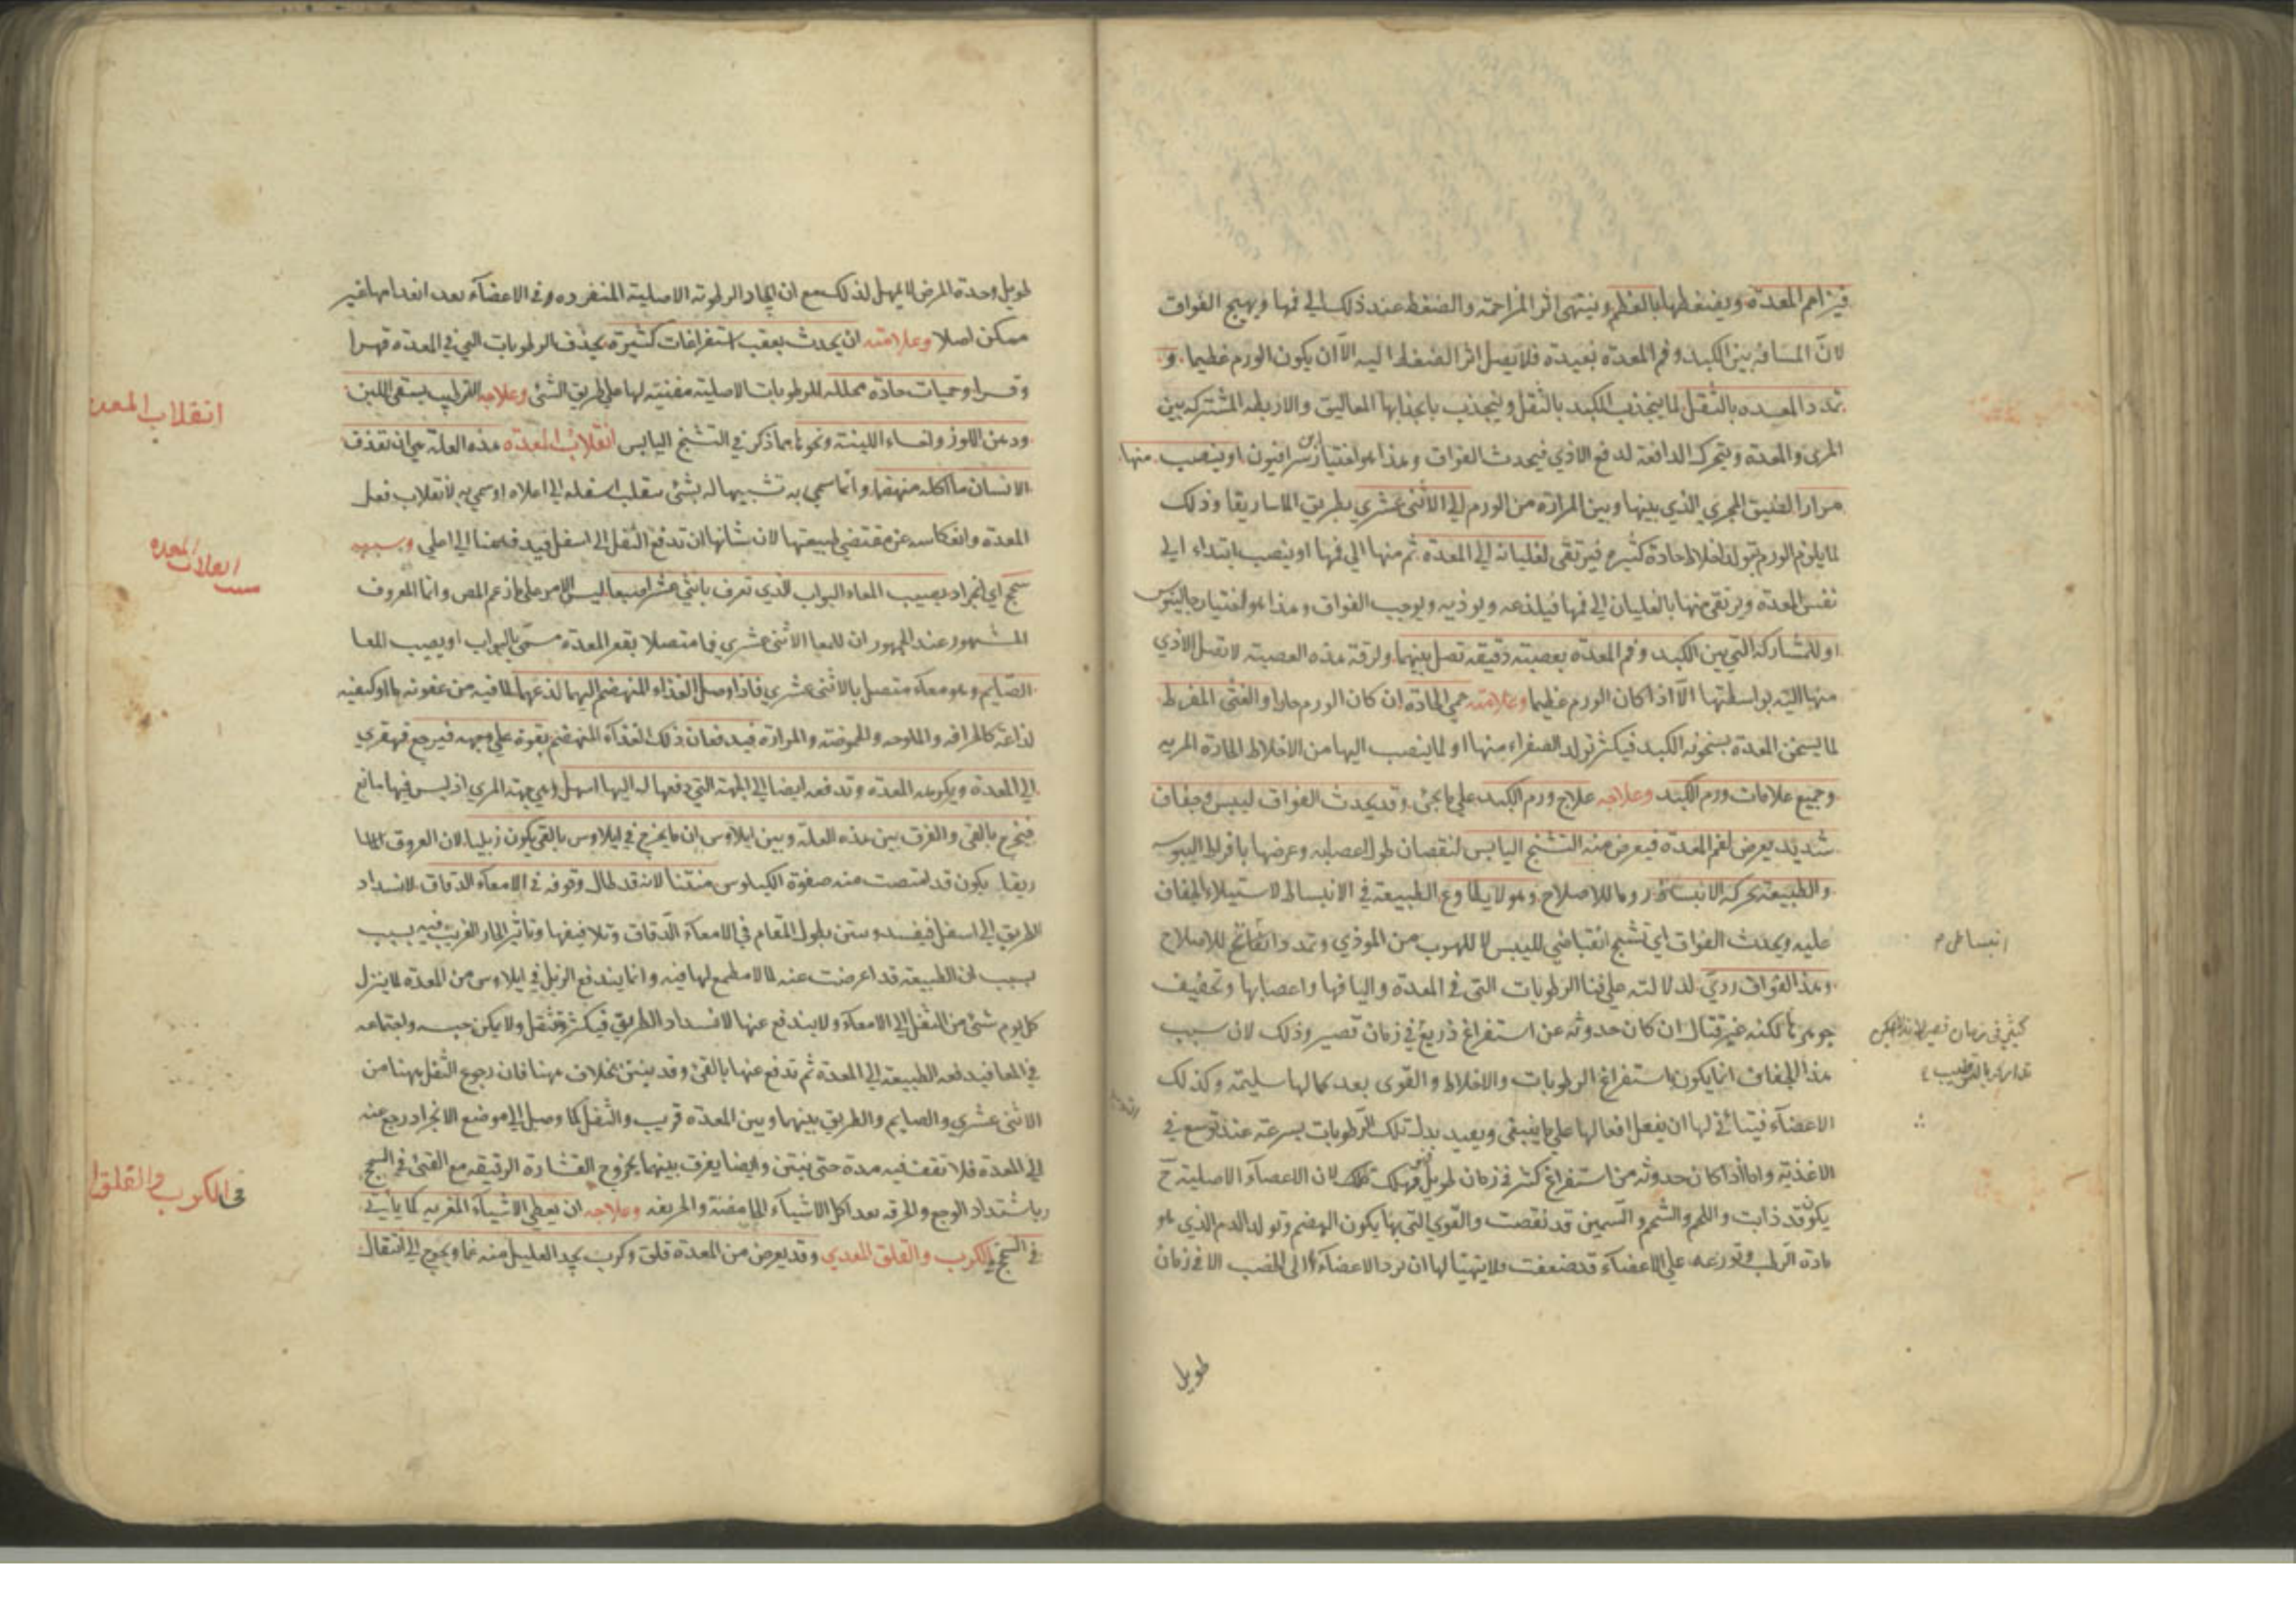 فيزاحم المعدة ويضغطها بالعظم وينتهى اثر المزاحمة والضغط عند ذلك الي فمها ويهيج الفواق
لان المسافة بين الكبد وفم المعدة بعيدة فلا يصل اثر الضغط اليه الا ان يكون الورم عظيما و
تمدد المعده بالثقل لما ينجذب الكبد بالثقل وينجذب بانجذابها المعاليق والاربطه المشتركه بين
المرئ والمعدة ويتحرك الدافعة لدفع الاذي فيحدث الفواق وهذا هو اختيار ابن سرافيون او ينصب منها
مرار الضيق المجري الذي بينها وبين المرارة من الورم الي الاثني عشري بطريق الماساريقا وذلك
لما يلزم الورم تولد اخلاط حادة كثيره فيرتقى لغليانه الي المعدة ثم منها الي فمها او ينصب ابتداء الي
نفس المعدة ويرتقى منها بالغليان الي فمها فيلذعه ويوذيه ويوجب الفواق وهذا هو اختيار جالينوس
او للمشاركة التي بين الكبد وفم المعدة بعصبته دقيقه تصل بينهما ولرقة هذه العصبته لا تصل الاذي
منها اليه بواسطتها الا اذا كان الورم عظيما وعلامته حمي الحادة ان كان الورم حارا والقئ المفرط
لما يسخن المعدة بسخونه الكبد فيكثر تولد الصفراء منها او لما ينصب اليها من الاخلاط الحادة المريه
وجميع علامات ورم الكبد وعلاجه علاج ورم الكبد علي ما يجئ وقد يحدث الفواق ليبس وجفاف
شديد يعرض لفم المعدة فيعرض منه التشنج اليابس لنقصان طول اعصابه وعرضها بافراط اليبوسه
والطبيعة تحركه الانبساط روما للاصلاح وهو لا يطاوع الطبيعة في الانبساط لاستيلاء الجفاف
عليه ويحدث الفواق اي تشنج انقباضي لليبس لا للهرب من الموذي وتمدد انبساطي للاصلاح
انبساطى م
وهذا الفواق ردي لدلالته علي فنا الرطوبات التى في المعدة واليافها واعصابها وتجفيف
جوهرها لكنه غير قتال ان كان حدوثه عن استفراغ ذريع في زمان قصير وذلك لان سبب
كثير فى زمان قصير
هذا الجفاف انما يكون استفراغ الرطوبات والاخلاط والقوى بعد كمالها سليمة وكذلك
تداركه بالترطيب
الاعضآء فيتاتي لها ان يفعل افعالها علي ما ينبغى ويعيد بدل تلك الرطوبات بسرعة عند توسع في
الاغذية واما اذا كان حدوثه من استفراغ كثير في زمان طويل فمهلك لان الاعصآء الاصلية ح
يكون قد ذابت واللحم والشحم والسمين قد نقصت والقوي التى بها يكون الهضم وتولد الدم الذي هو
مادة الرطب وتوزعه علي الاعضآء قد ضعفت فلا يتهيا لها ان ترد الاعضآء الى الخصب الا في زمان
طويل
طويل وحدة المرض لا يمهل لذلك مع ان ايجاد الرطوبة الاصلية المنفرده في الاعضآء بعد انعدامها غير
ممكن اصلا وعلامته ان يحدث بعقب استفراغات كثيرة يجذف الرطوبات التي في المعدة قهرا
وقسرا وحميات حادة محلله للرطوبات الاصلية مفنية لها علي طريق الشئ وعلاجه الترطيب بسقي اللبن
ودهن اللوز ولحساء اللينة ونحوها مما ذكر في التشنج اليابس انقلاب المعدة هذه العلة هي ان تقذف
انقلاب المعدة
الانسان ما اكله منهضما وانما سمي به تشبيها له بشئ يقلب اسفله الي اعلاه او سمي به لانقلاب فعل
المعدة وانعكاسه عن مقتضي طبيعتها لان شانها ان تدفع الثقل الي اسفل فيدفع هنا الي اعلي وسببه
انقلاب المعده
سحج اي انجراد يصيب المعاء البواب الذي تعرف باثني عشر اصبعا ليس الامر علي ما زعم المص وانما المعروف
المشهور عند الجمهور ان للمعا الاثني عشري فما متصلا بقعر المعدة مسمي بالبواب او يصيب المعا
الصايم وهو معآء متصل بالاثني عشري فاذا وصل الغذاء المنهضم اليهما لذعهما لما فيه من عفونه ما او كيفيه
لذاعة كالحرافه والملوحه والحموضة والمرارة فيدفعان ذلك الغذآء المنهضم بقوة علي وجهه فيرجع قهقري
الي المعدة ويكرهه المعدة وتدفعه ايضا الي الجهة التي دفعها له اليها اسهل وهي جهة المري اذ ليس فيها مانع
فيخرج بالقئ والفرق بين هذه العلة وبين ايلاوس ان ما يخرج في ايلاوس بالقئ يكون زبليا لان العروق الماسا
ريقا يكون قد امتصت منه صفوة الكيلوس منتنا لانه قد طال وقوفه في الامعآء الدقاق لانسداد
الطريق الي اسفل فيفسد وينتن بطول المقام في الامعآء الدقاق وتلافيفها وتاثير الحار الغريب فيه بسبب
بسبب ان الطبيعة قد اعرضت عنه لما لا مطمع لها فيه وانما يندفع الزبل في ايلاوس من المعدة لما ينزل
كل يوم شئ من الثفل الي الامعآء ولا يندفع عنها لانسداد الطريق فيكثر وتثقل ولا يمكن حبسه واجتماعه
في المعا فيدفعه الطبيعة الي المعدة ثم تدفع عنها بالقئ وقد ينتن بخلاف هنا فان رجوع الثفل ههنا من
الاثني عشري والصايم والطريق بينهما وبين المعدة قريب والثفل كلما وصل الي موضع الانجراد رجع عنه
الي المعدة فلا تقف فيه مدة حتى ينتن وايضا يفرق بينهما بخروج القشارة الرقيقه مع القئ في السحج
وباشتداد الوجع والحرقه بعد اكل الاشيآء الحامضة والحريفه وعلاجه ان يعطي الاشيآء المغريه كما ياتي
في الكرب والقلق
في السحج في الكرب والقلق المعدي وقد يعرض من المعدة قلق وكرب يجد العليل منه غما ويحوج الي انتقال